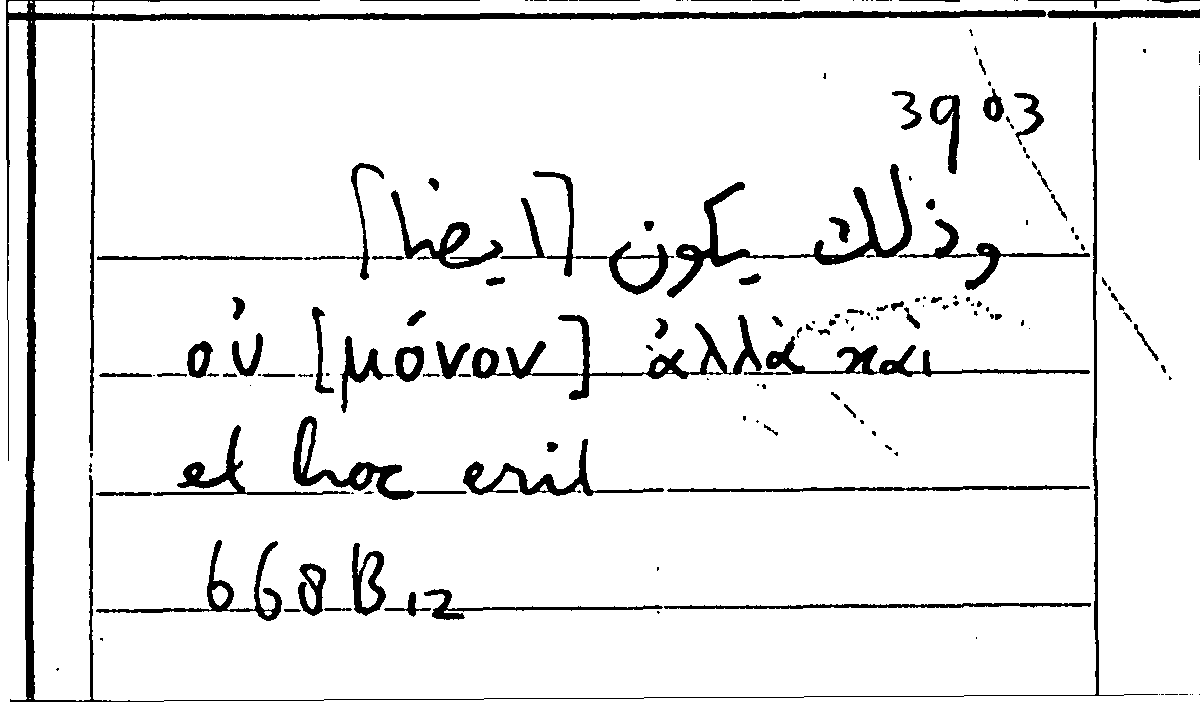 3903
وذلك يكون [ايضا]
οὐ [μόνον] ἀλλὰ καὶ
et hoc erit
668B12